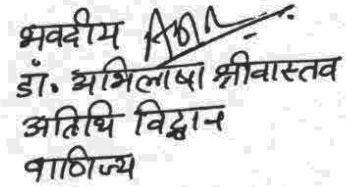 भवदीय
डॉ. अभिलाषा श्रीवास्तव
अतिथि विद्वान
वाणिज्य